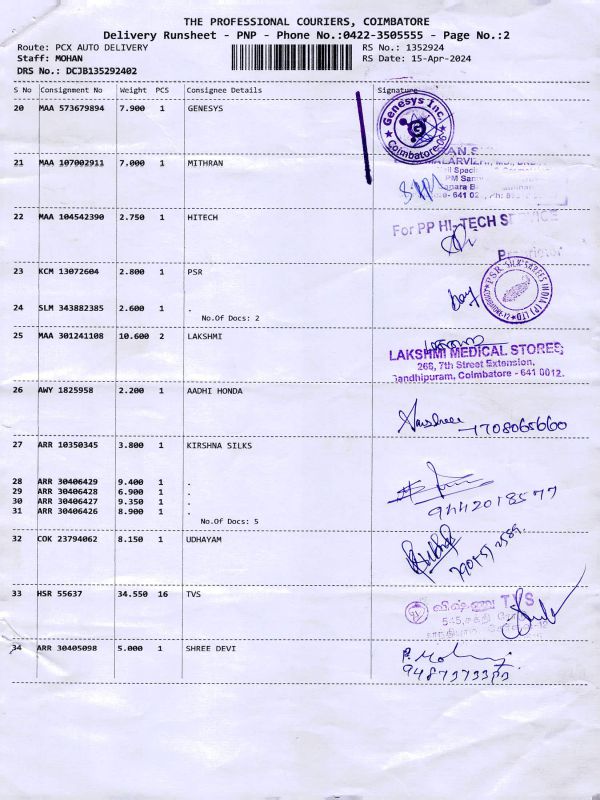 THE PROFESSIONAL COURIERS, COIMBATORE
Delivery Runsheet - PNP - Phone No.:0422-3505555 - Page No.:2
Route: PCX AUTO DELIVERY RS No.: 1352924
Staff: MOHAN RS Date: 15-Apr-2024
DRS No.: DCJB135292402
S No Consignment No Weight PCS Consignee Details Signature
20 MAA 573679894 7.900 1 GENESYS
Genesys Inc.
Coimbatore-06
21 MAA 107002911 7.000 1 MITHRAN
22 MAA 104542390 2.750 1 HITECH
For PP HI-TECH SERVICE
23 KCM 13072604 2.800 1 PSR
24 SLM 343882385 2.600 1 .
No.Of Docs: 2
25 MAA 301241108 10.600 2 LAKSHMI
LAKSHMI MEDICAL STORES
268, 7th Street Extension,
Gandhipuram, Coimbatore - 641 0012.
26 AWY 1825958 2.200 1 AADHI HONDA
27 ARR 10350345 3.800 1 KIRSHNA SILKS
28 ARR 30406429 9.400 1 .
29 ARR 30406428 6.900 1 .
30 ARR 30406427 9.350 1 .
31 ARR 30406426 8.900 1 .
No.Of Docs: 5
9442018577
32 COK 23794062 8.150 1 UDHAYAM
33 HSR 55637 34.550 16 TVS
விஷ்ணு TVS
34 ARR 30405098 5.000 1 SHREE DEVI